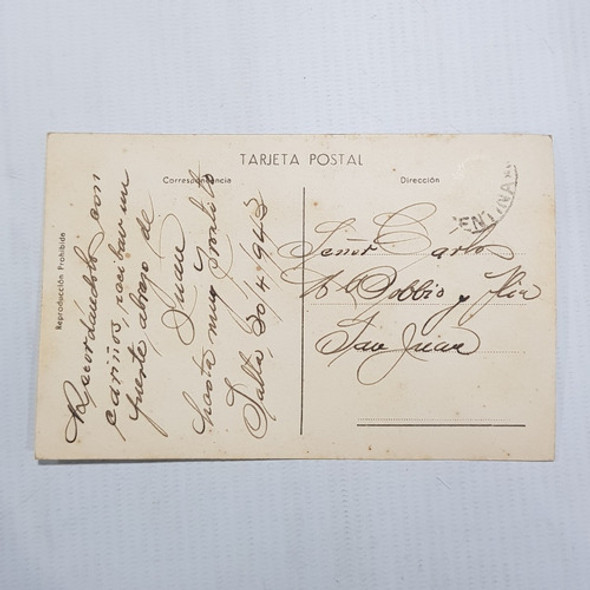 TARJETA POSTAL
Correspondencia
Dirección
Reproducción Prohibida
Recordándolo con
cariños, reciban un
fuerte abrazo de
Juan
hasta muy prontito
Salta, 30/4/943
ENTINA
Señor Carlos
Dobbio y Flia
San Juan